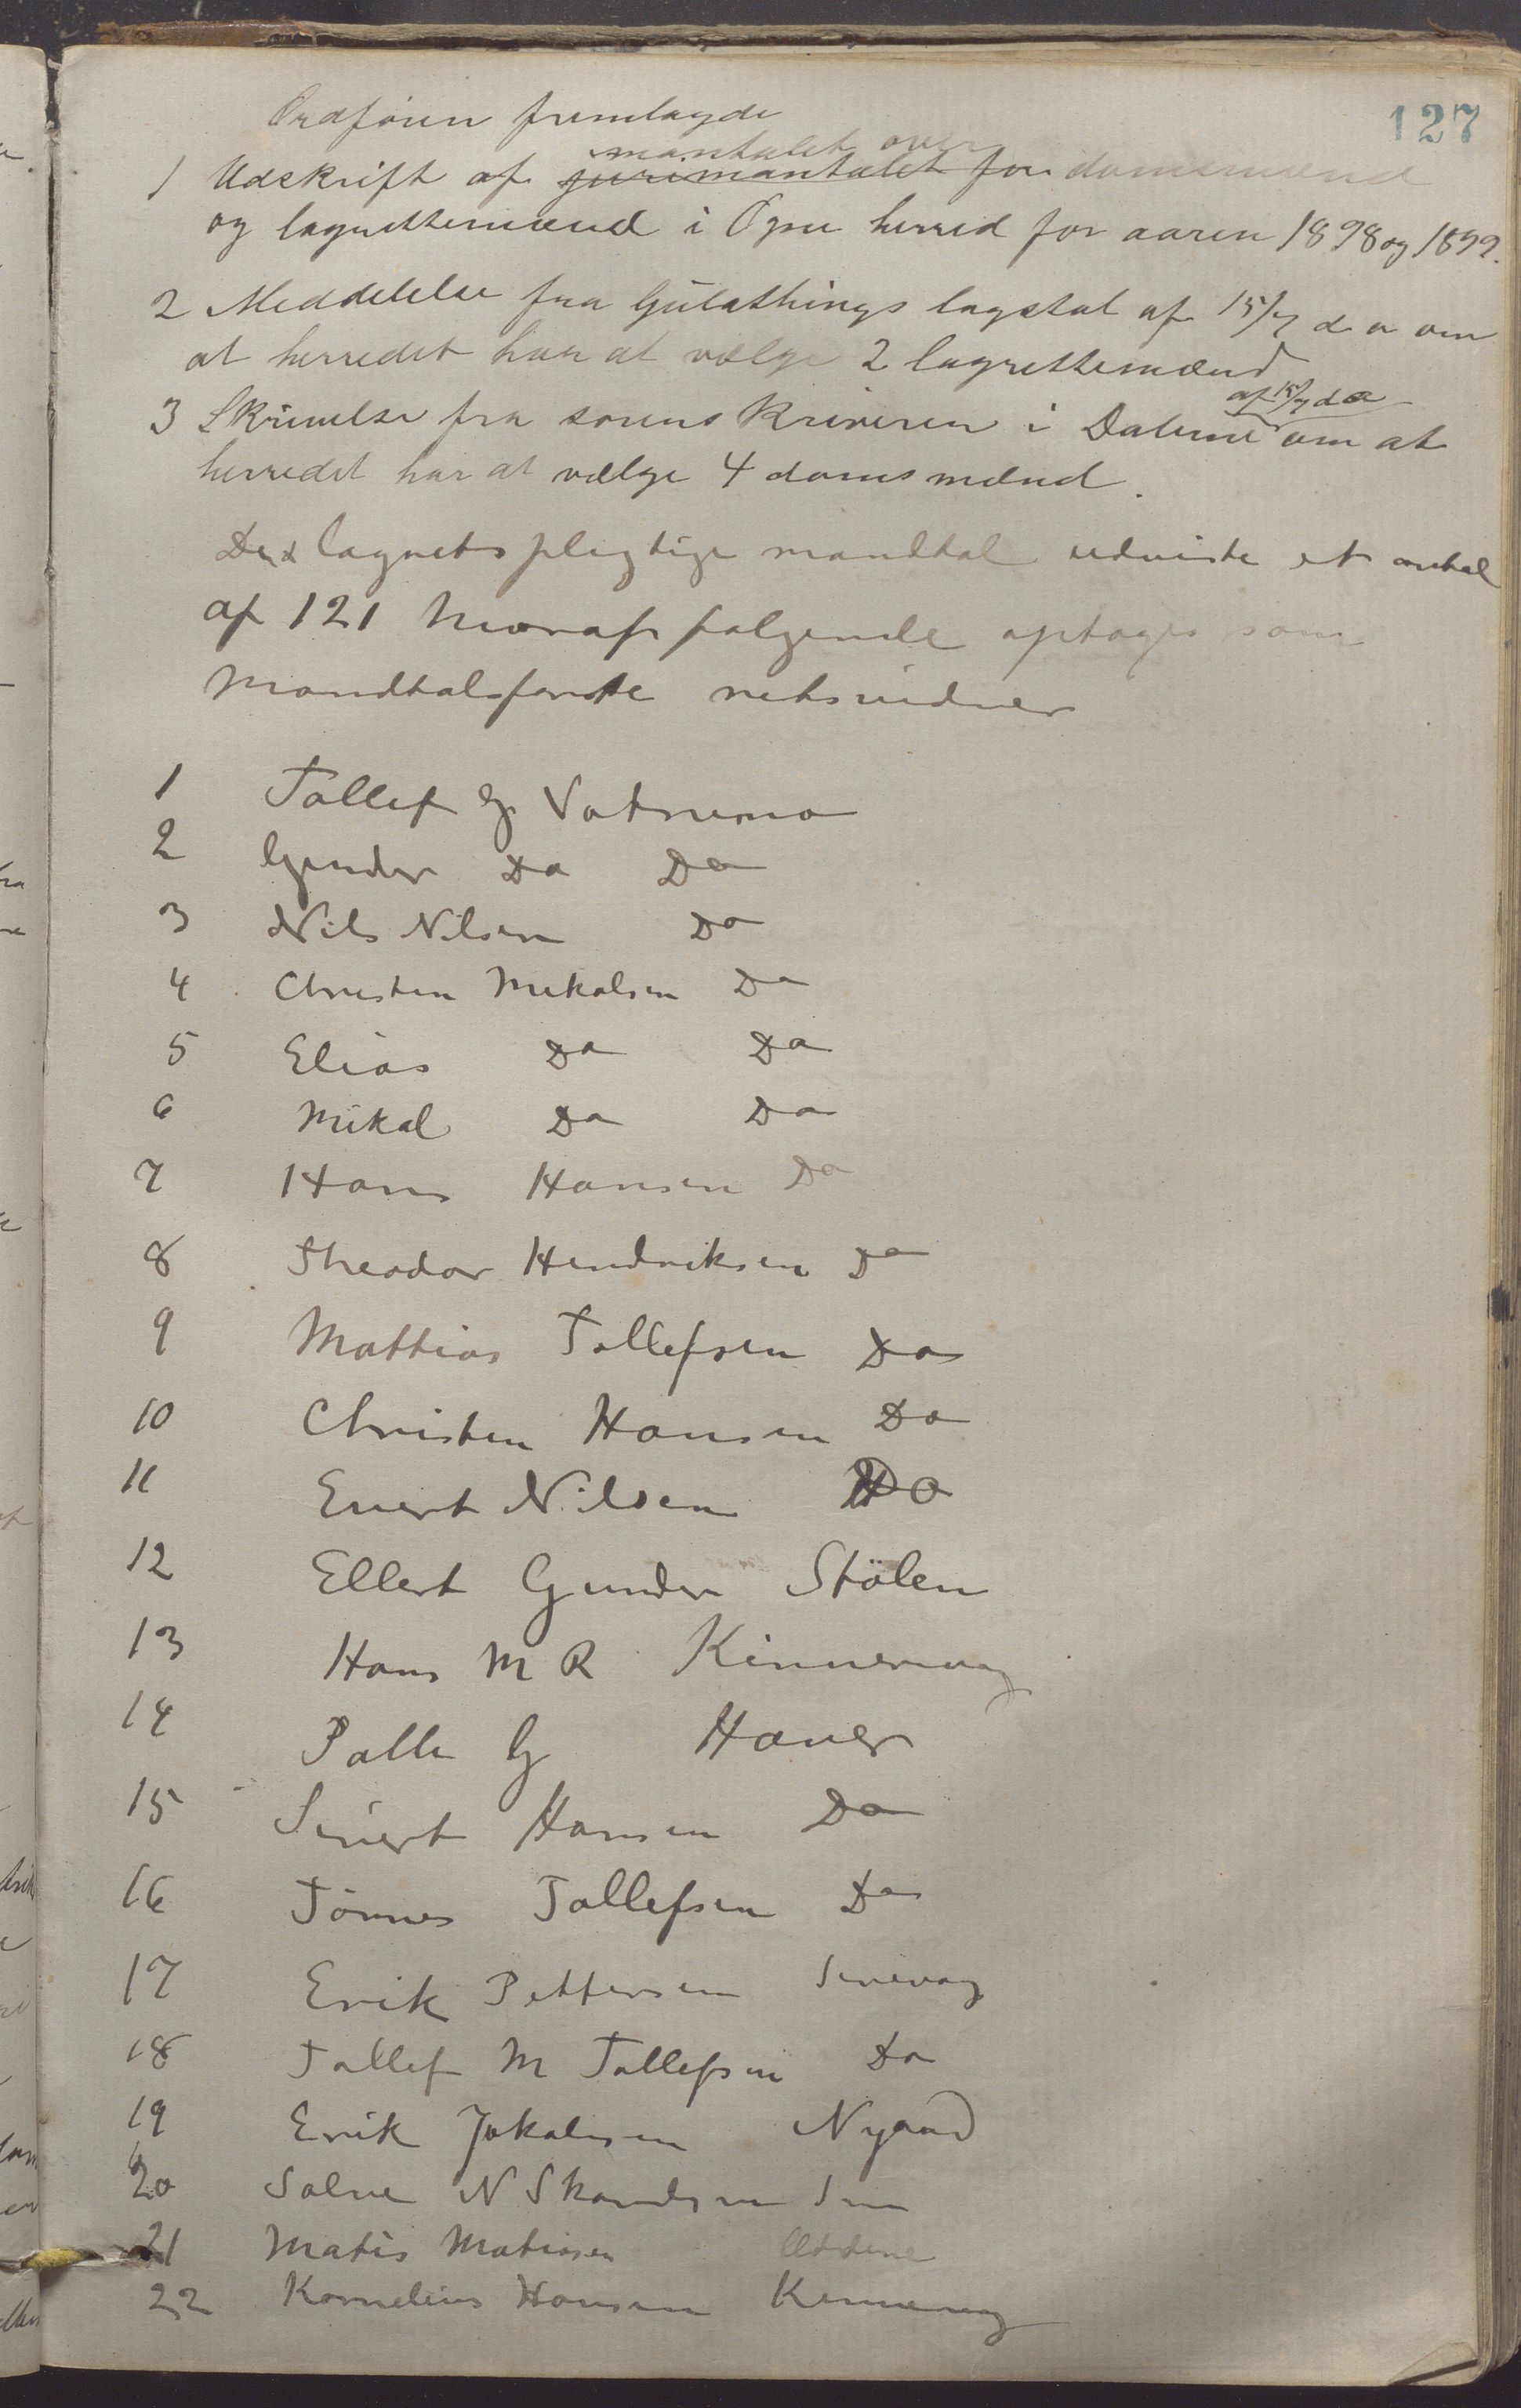 127
Ordføren fremlagde
1 Udskrift af jurimantalet for mantalet over domsmænd
og lagrettemænd i Ogne herred for aaren 1898 og 1899.
2 Meddelelse fra Gulathings lagstol af 15/7 d a om
at herredet har at vælge 2 lagrettemænd
3 Skrivelse fra sorenskriveren i Dalerne af 15/7 d a om at
herredet har at vælge 4 domsmænd.
Det lagretspligtige mandtal udviste et antal
af 121 hvoraf følgende optages som
mandtalsførte retsvidner
1 Tollef G Vatnemo
2 Gunder Do Do
3 Nils Nilsen Do
4 Christen Mikalsen Do
5 Elias Do Do
6 Mikal Do Do
7 Hans Hansen Do
8 Theodor Hendriksen Do
9 Mattias Tollefsen Do
10 Christen Hansen Do
11 Evert Nilsen Do
12 Ellert Gunder Stölen
13 Hans M R Kinnervag
14 Palle G Haver
15 Sivert Hansen Do
16 Tönnes Tollefsen Do
17 Erik Pettersen Sirevag
18 Tollef M Tollefsen Do
19 Erik Jokalsen Nygaard
20 Salve N
21 Matis Matiasen
22 Kornelius Hansen Kinnervag